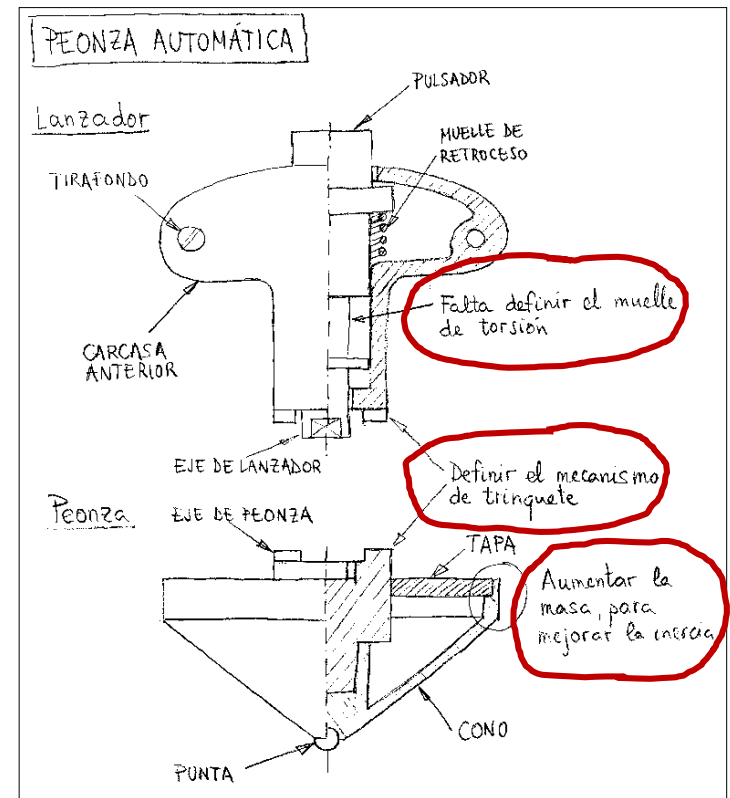 PEONZA AUTOMÁTICA
Lanzador
PULSADOR
MUELLE DE
RETROCESO
TIRAFONDO
Falta definir el muelle
de torsión
CARCASA
ANTERIOR
EJE DE LANZADOR
Definir el mecanismo
de trinquete
Peonza
EJE DE PEONZA
TAPA
Aumentar la
masa, para
mejorar la inercia
CONO
PUNTA